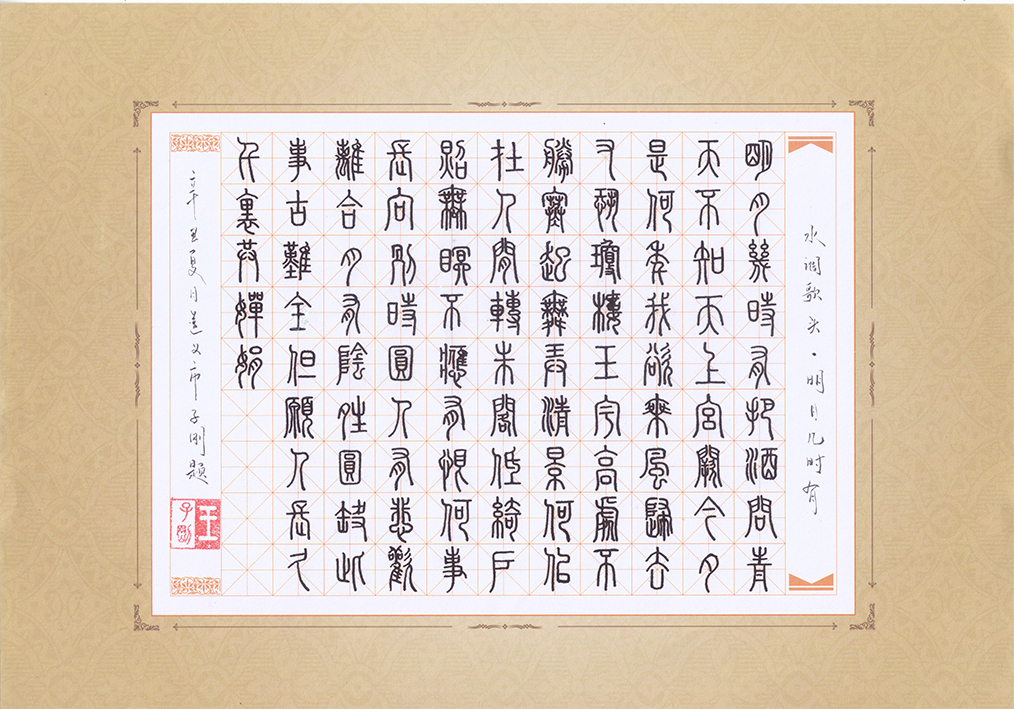 水调歌头·明月几时有
明月幾時有把酒問青
天不知天上宮闕今夕
是何年我欲乘風歸去
又恐瓊樓玉宇高處不
勝寒起舞弄清景何佀
在人間轉朱閣低綺戶
照無眠不應有恨何事
長向別時圓人有悲歡
離合月有陰晴圓缺此
事古難全但願人長久
千裏共嬋娟
辛丑夏月遵义市子刚题
王子剛